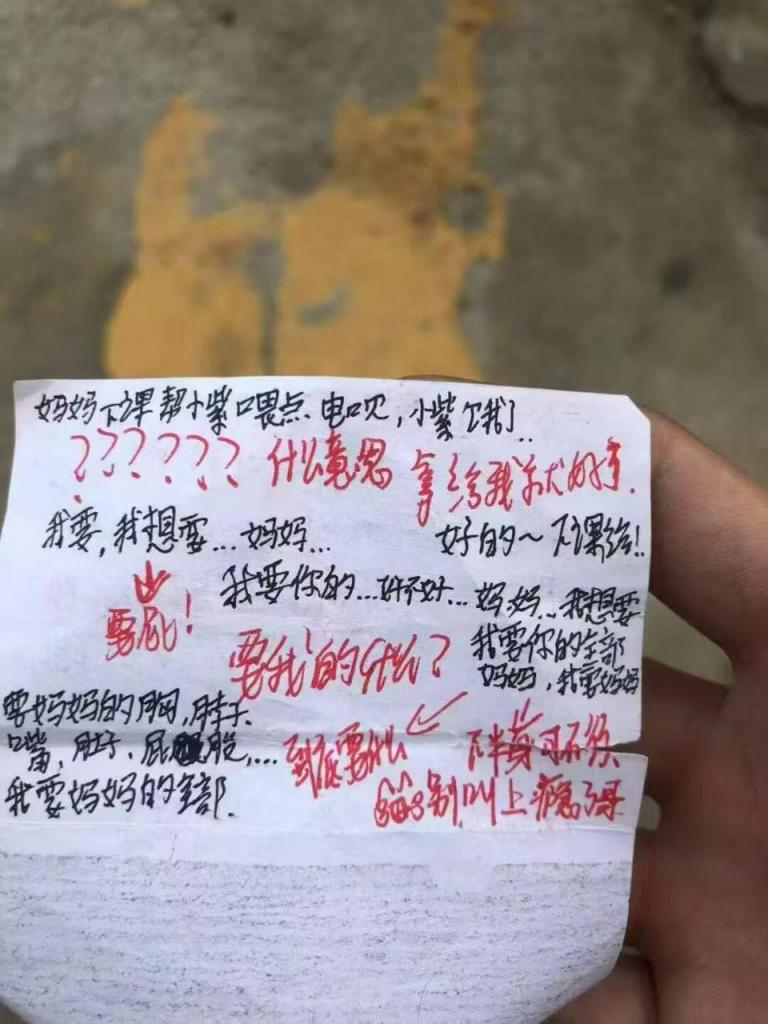 妈妈下课帮小紫喂点电呗,小紫饿了..
?????? 什么意思 拿给我就好了.
我要,我想要...妈妈...
好的~下课给!!
要屁!
我要你的...好不好...妈妈...我想要
我要你的全部
妈妈,我要妈妈
要我的什么?
要妈妈的胸,脖子.
嘴,肚子.屁股,...
我要妈妈的全部.
到底要什么
下半身可不须
别叫上瘾了哥